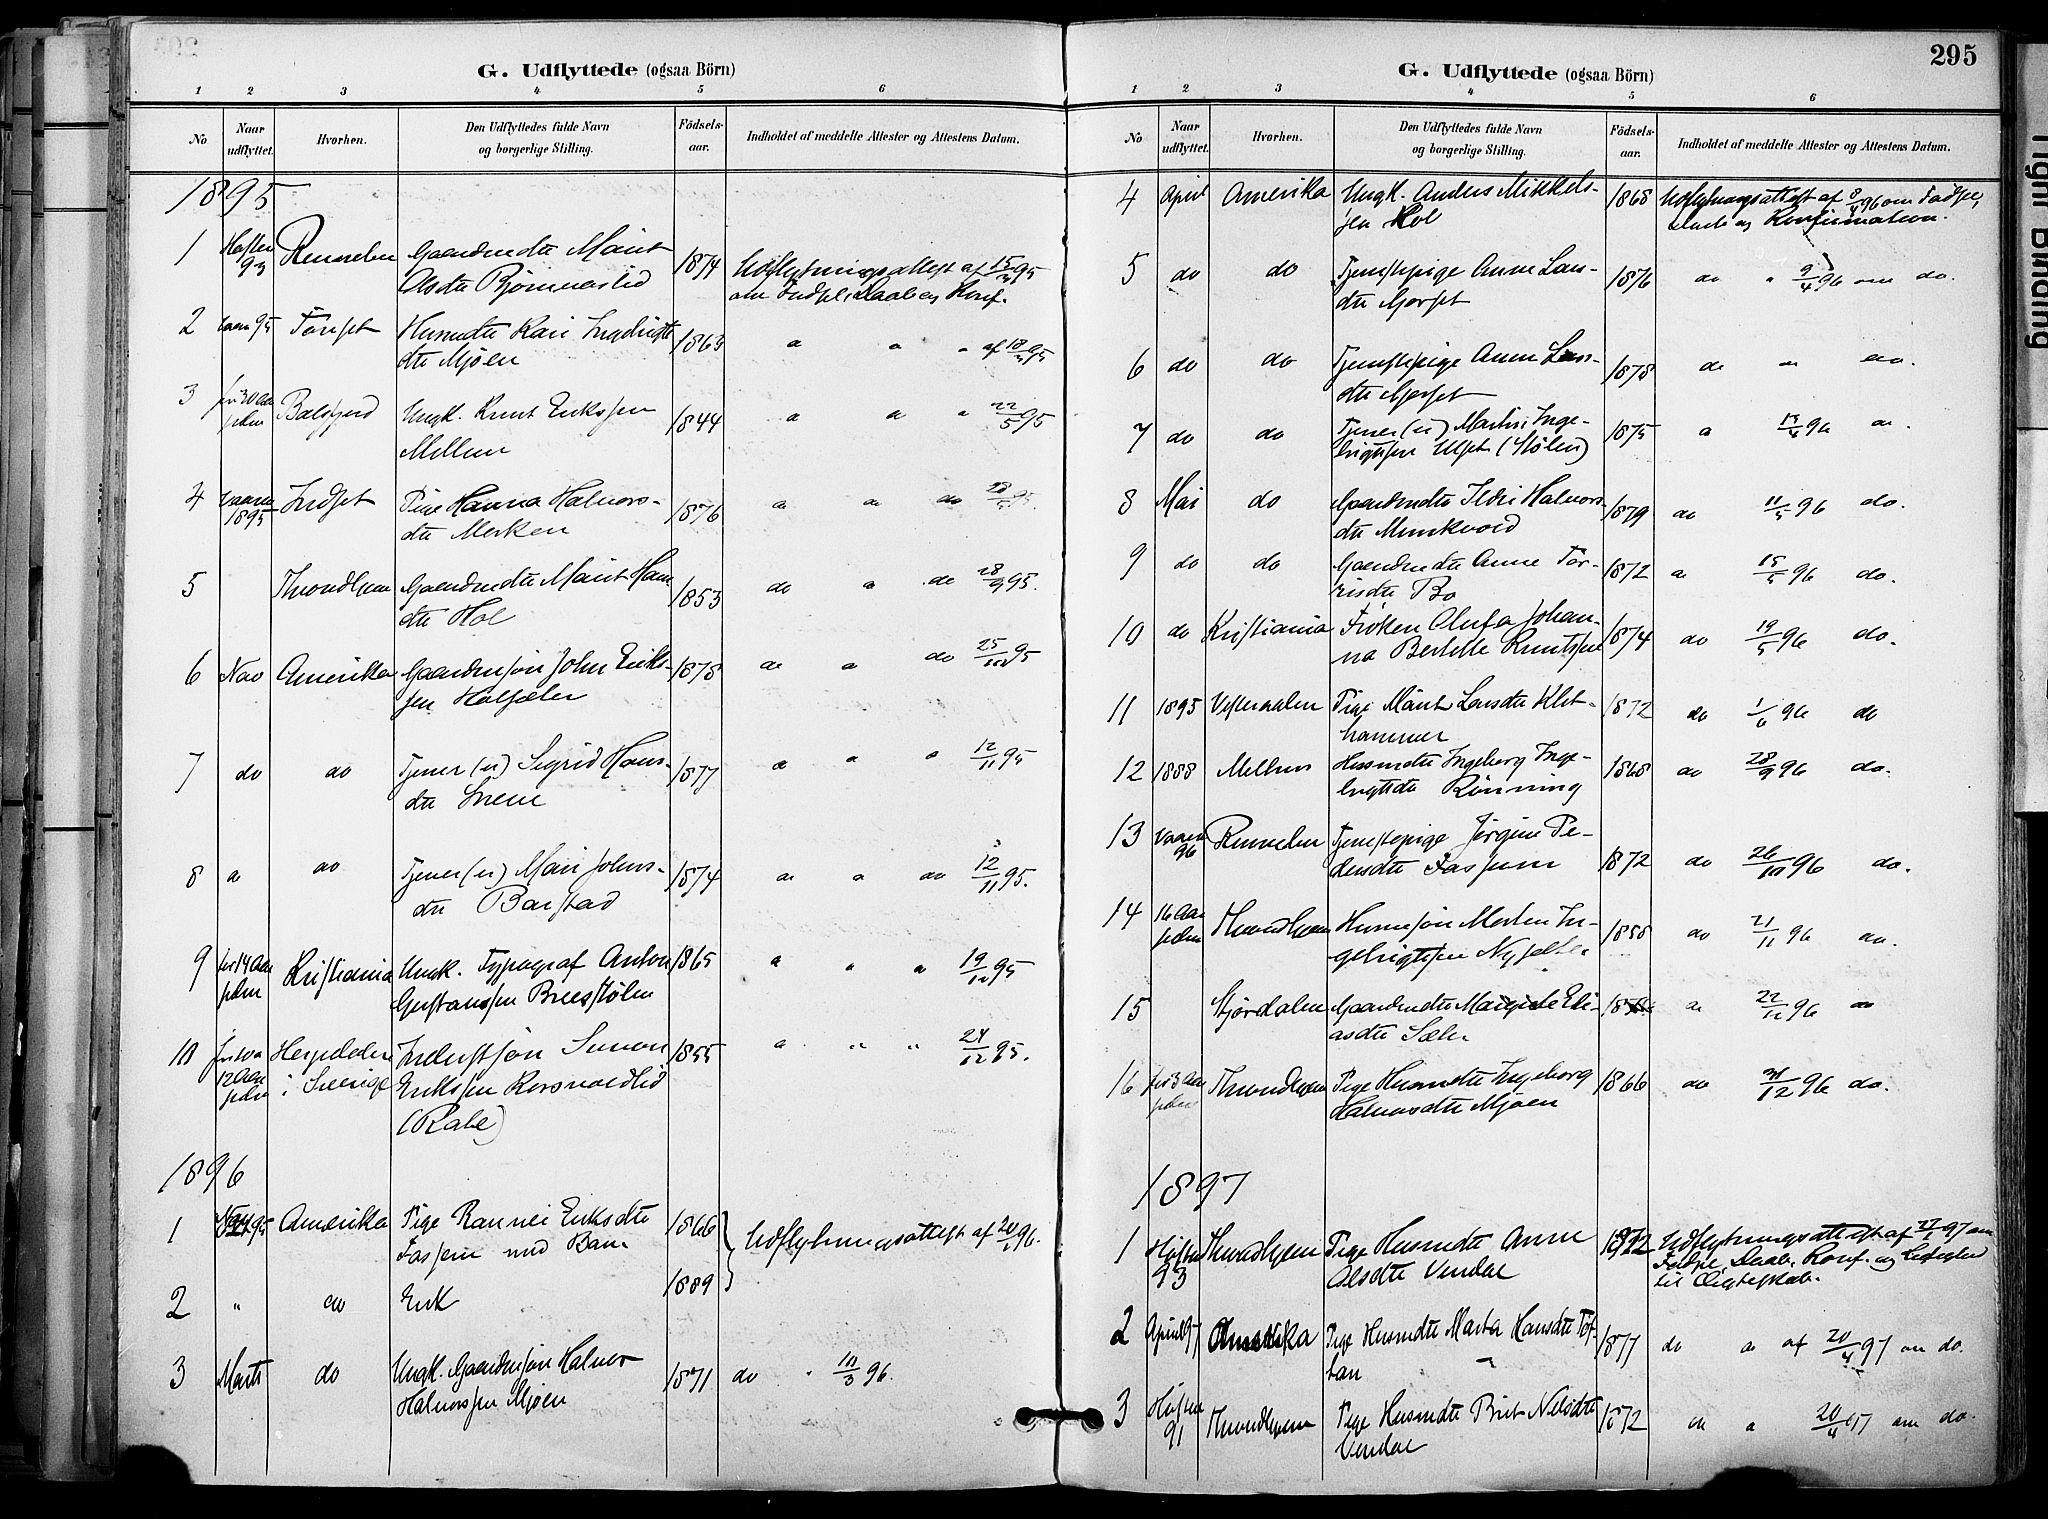 G. Udflyttede (ogsaa Börn)
1 2 3 4 5 6
No Naar udflyttet. Hvorhen. Den Udflyttedes fulde Navn og borgerlige Stilling. Födsels-aar. Indholdet af meddelte Attester og Attestens Datum.
1895
1 Høsten 93 Rennebu Gaardmdtr Marit 1874 Udflytningsattest af 15/3 95
Olsdtr Bjørnaaslid om Fødsel, Daab og Konf.
2 vaar 95 Tønset Husmdtr Kari Ingebrigts- 1863 " " " af 18/3 95
dtr Mjøen
3 for 30 Aar siden Balsfjord Ungk. Knut Eriksen 1844 " " " 22/5 95
Mellem
4 vaaren 1895 Indset Pige Hanna Halvors- 1876 " " do 28/5 95.
dtr Merken
5 Throndhjem Gaardmdtr Marit Hans 1853 do " do 28/9 95.
dtr Hol
6 Nov Amerika Gaardmsøn John Eriks- 1878 do " do 25/10 95
sen Halsæter
7 do do Tjener (u) Sigrid Hans- 1877 " " " 12/11 95
dtr Snem
8 " do Tjener (u) Mari Johns- 1874 " " do 12/11 95.
dtr Barstad
9 for 14 Aar siden Kristiania Ungk. Typograf Anton 1865 " " " 19/12 95
Gustavsen Breestølen
10 for 10 a 12 Aar siden Herjedalen i Sverige Inderstsøn Simon 1855 " " " 24/12 95.
Eriksen Korsvoldlid
(Rabe)
1896
1 95 Amerika Pige Rannei Eriksdtr 1866 Udflytningsattest af 20/1 96.
Fassem med Barn
2 " do Erik 1889
3 Marts do Ungk. Gaardmsøn Halvor 1871 do " 10/3 96.
Halvorsen Mjøen
295
G. Udflyttede (ogsaa Börn)
1 2 3 4 5 6
No Naar udflyttet. Hvorhen. Den Udflyttedes fulde Navn og borgerlige Stilling. Födsels-aar. Indholdet af meddelte Attester og Attestens Datum.
4 April Amerika Ungk. Anders Mikkels- 1868 Udflytningsattest af 8/4 96 om Fødsel,
sen Hol Daab og Konfirmation.
5 do do Tjenstepige Anne Lars- 1876 do " 9/4 96 om do.
dtr Gorset
6 do do Tjenstepige Anne Lars- 1878 do " do.
dtr Gorset
7 do do Tjener (u) Martin Inge- 1875 " 13/4 96 do.
brigtsen Ulset (Stølen)
8 Mai do Gaardmdtr Ildri Halvors 1879 do 11/5 96 do.
dtr Munkvold
9 do do Gaardmdtr Anne Tor- 1872 " 15/5 96 do.
risdtr Bø
10 do Kristiania Frøken Olufa Johan- 1874 do 19/5 96 do.
na Bertelle Knutsen
11 1895 Vesteraalen Pige Marit Larsdtr Klet- 1872 do 1/6 96 do
hammer
12 1888 Melhus Husmdtr Ingeborg Inge- 1868 do 28/9 96 do.
brigtsdtr Rønning
13 vaaren 96 Rennebu Tjenstepige Jørgine Pe- 1872 do 26/10 96 do.
dersdtr Fassem
14 16 Aar siden Throndhjem Husmsøn Morten In- 1858 do 21/11 96 do.
gebrigtsen Nysæter
15 Stjørdalen Gaardmdtr Margrete Eli- " 22/12 96 do
asdtr Sæter
16 for 3 Aar siden Throndhjem Pige Husmdtr Ingeborg 1866 do 31/12 96 do.
Halvorsdtr Mjøen
1897
1 Høsten 93 Throndhjem Pige Husmdtr Anne 1872 Udflytningsattest af 27/1 97 om
Olsdtr Vindal Fødsel, Daab, Konf. og Ledighed
til Ægteskab.
2 April 97 Amerika Pige Husmdtr Marta Hansdtr Tøf- 1877 do " af 20/4 97 om do.
tan
3 Høsten 91 Throndhjem Pige Husmdtr Brit Nilsdtr 1872 do " 20/4 97 om do.
Vindal
Tight Binding